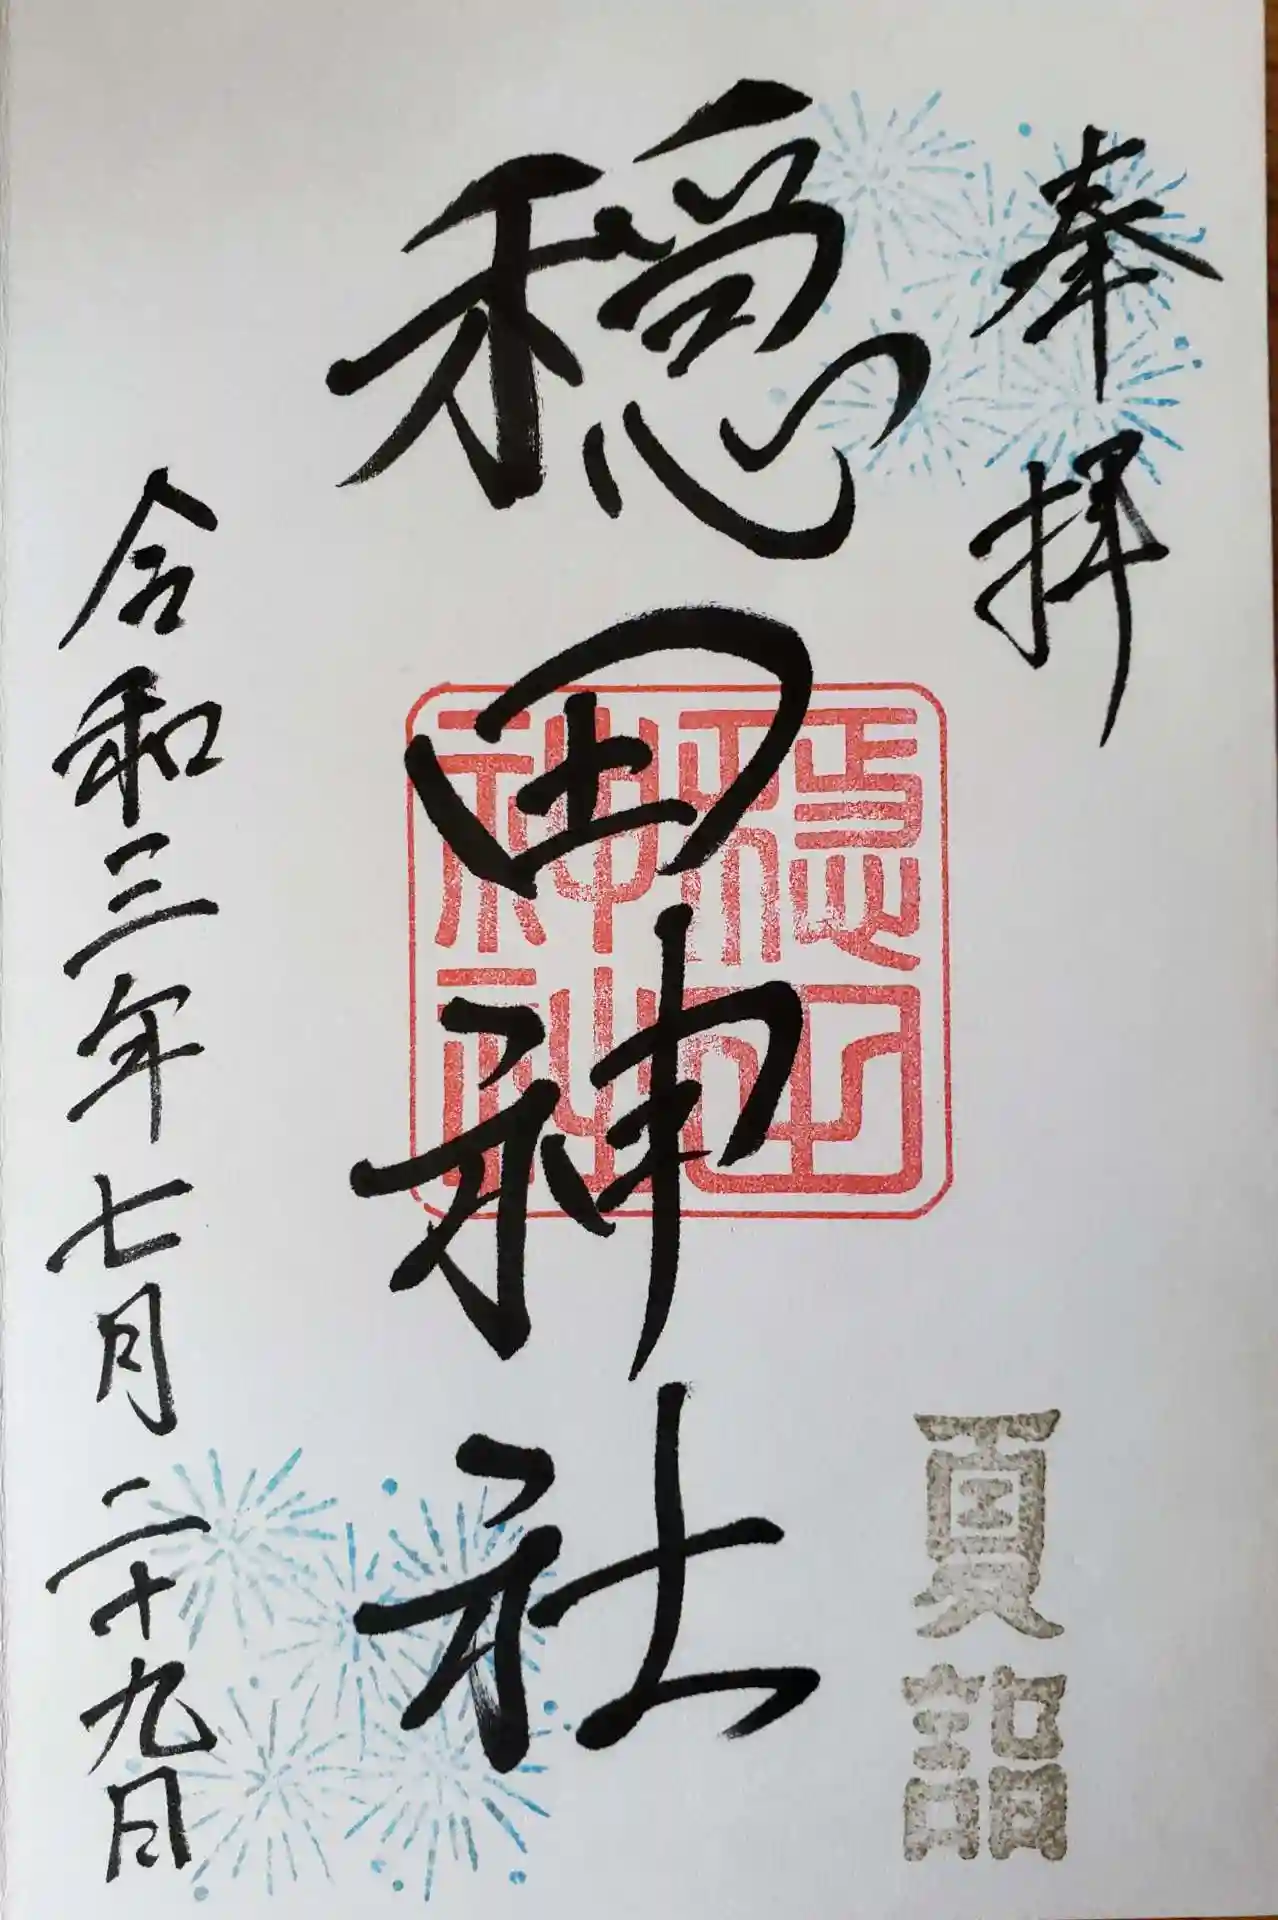 奉拝
夏詣
穏田神社
穏田神社
令和三年七月二十九日